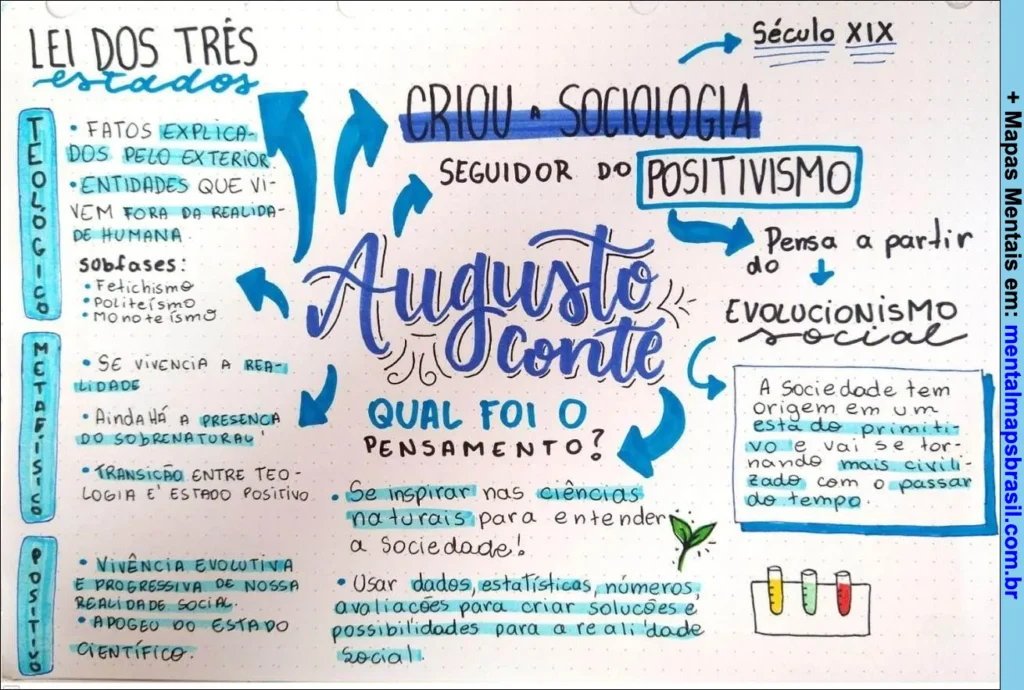 LEI DOS TRÊS
estados
TEOLÓGICO
• FATOS EXPLICA-
DOS PELO EXTERIOR.
• ENTIDADES QUE VI-
VEM FORA DA REALIDA-
DE HUMANA
SUBFASES:
• Fetichismo
• Politeísmo
• Monoteísmo
METAFÍSICO
• SE VIVENCIA A REA-
LIDADE
• Ainda HÁ A PRESENÇA
DO SOBRENATURAL
• TRANSIÇÃO ENTRE TEO-
LOGIA E ESTADO POSITIVO
POSITIVO
• VIVÊNCIA EVOLUTIVA
E PROGRESSIVA DE NOSSA
REALIDADE SOCIAL.
• APOGEU DO ESTADO
CIENTÍFICO.
Século XIX
CRIOU A SOCIOLOGIA
SEGUIDOR DO POSITIVISMO
Pensa a partir
do
EVOLUCIONISMO
social
A sociedade tem
origem em um
estado primiti-
vo e vai se tor-
nando mais civili-
zado com o passar
do tempo.
Augusto
conte
QUAL FOI O
PENSAMENTO?
• Se inspirar nas ciências
naturais para entender
a sociedade!
• Usar dados, estatísticas, números,
avaliações para criar soluções e
possibilidades para a realidade
social.
+ Mapas Mentais em: mentalmapsbrasil.com.br